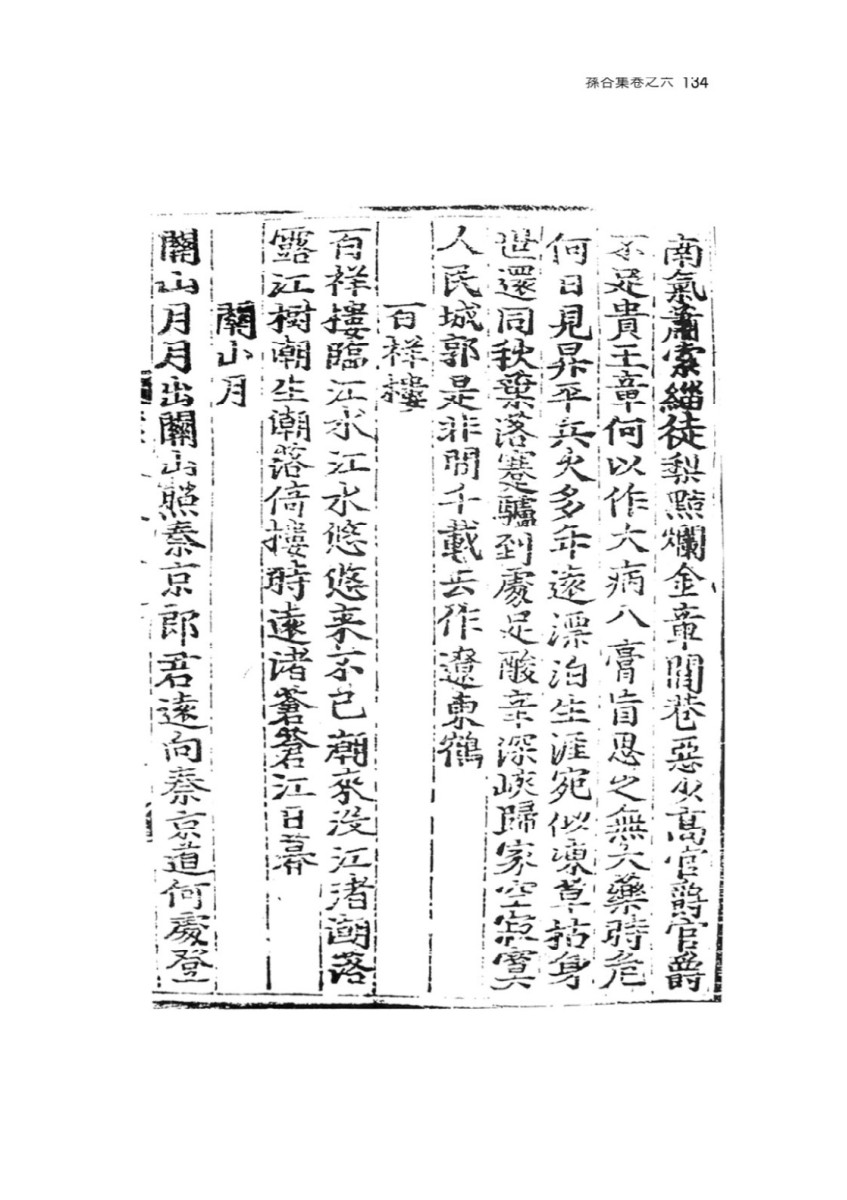 孫谷集卷之六 134
南氣蕭索緇徒梨㸃爛金章閭巷惡少高官爵官爵
不足貴王章何以作大病入膏肓思之無大藥時危
何日見昇平兵火多年遠漂泊生涯宛似凍草枯身
世還同秋葉落蹇驢到處足酸辛深峽歸家空寂寞
人民城郭是非間千載去作遼東鶴
百祥樓
百祥樓臨江水江水悠悠来不已潮來沒江渚潮落
露江樹潮生潮落倚樓時遠渚蒼蒼江日暮
關山月
關山月月出關山照秦京郎君遠向秦京道何處登